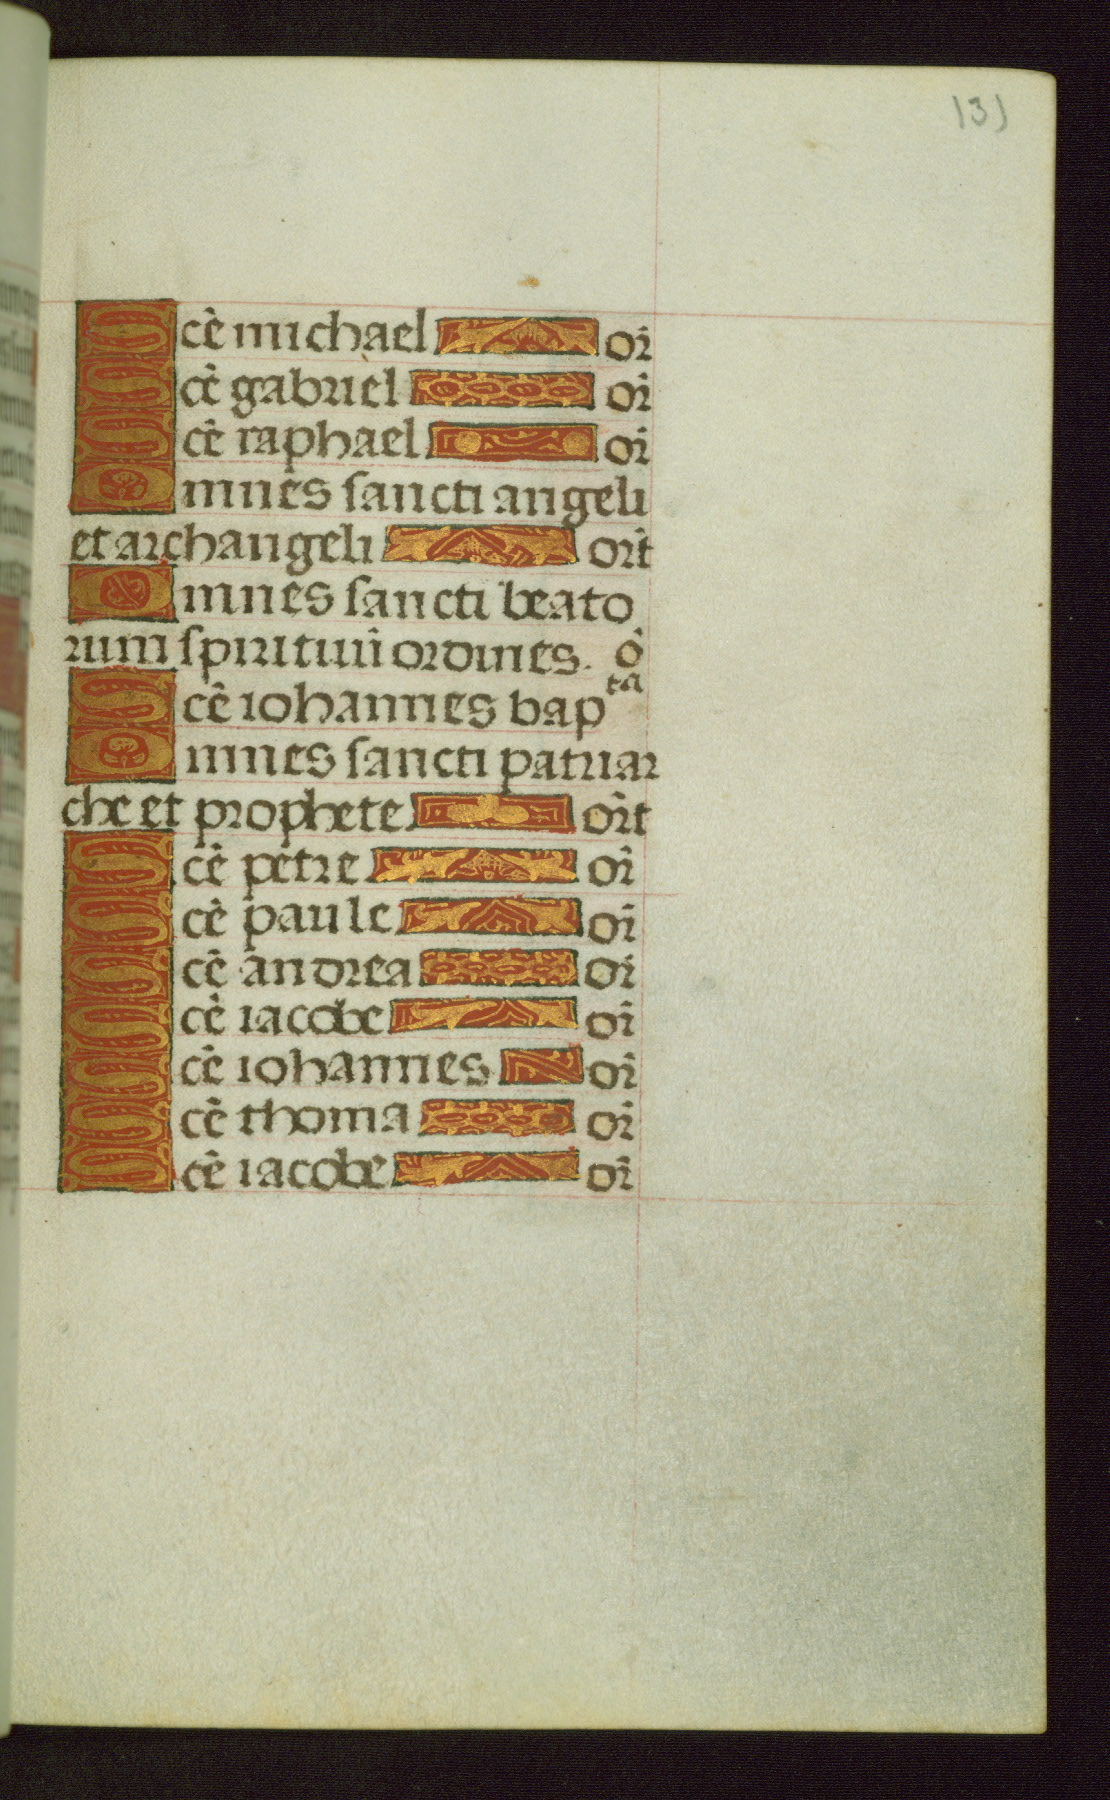 131
Scē michael or̄
Scē gabriel or̄
Scē raphael or̄
Omnes sancti angeli
et archangeli or̄t
Omnes sancti beato
rum spirituū ordines. ō
Scē iohannes bapta
Omnes sancti patriar
che et prophete or̄t
Scē petre or̄
Scē paule or̄
Scē andrea or̄
Scē iacobe or̄
Scē iohannes or̄
Scē thoma or̄
Scē iacobe or̄